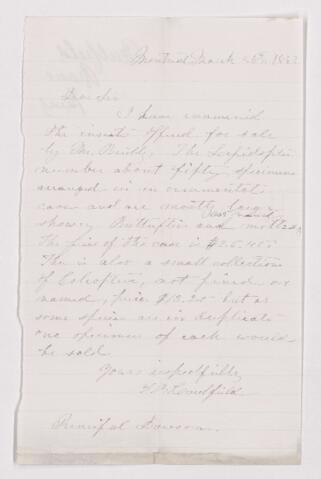 Montreal March 26th 188
Dear Sir
I have examined
the insects offered for sale
by Mr. The Lepidoptera
number about fifty specimens
arranged in an ornamental
case and are mostly large
showy Butterflies and moths,
The price of the case is $25.00
There is also a small collection
of Coleoptera, not pinned or
named, price $13.25 but as
some species are in duplicate
one specimen of each would
be sold.
Yours respectfully
F. B. Caulfield
Principal Dawson.